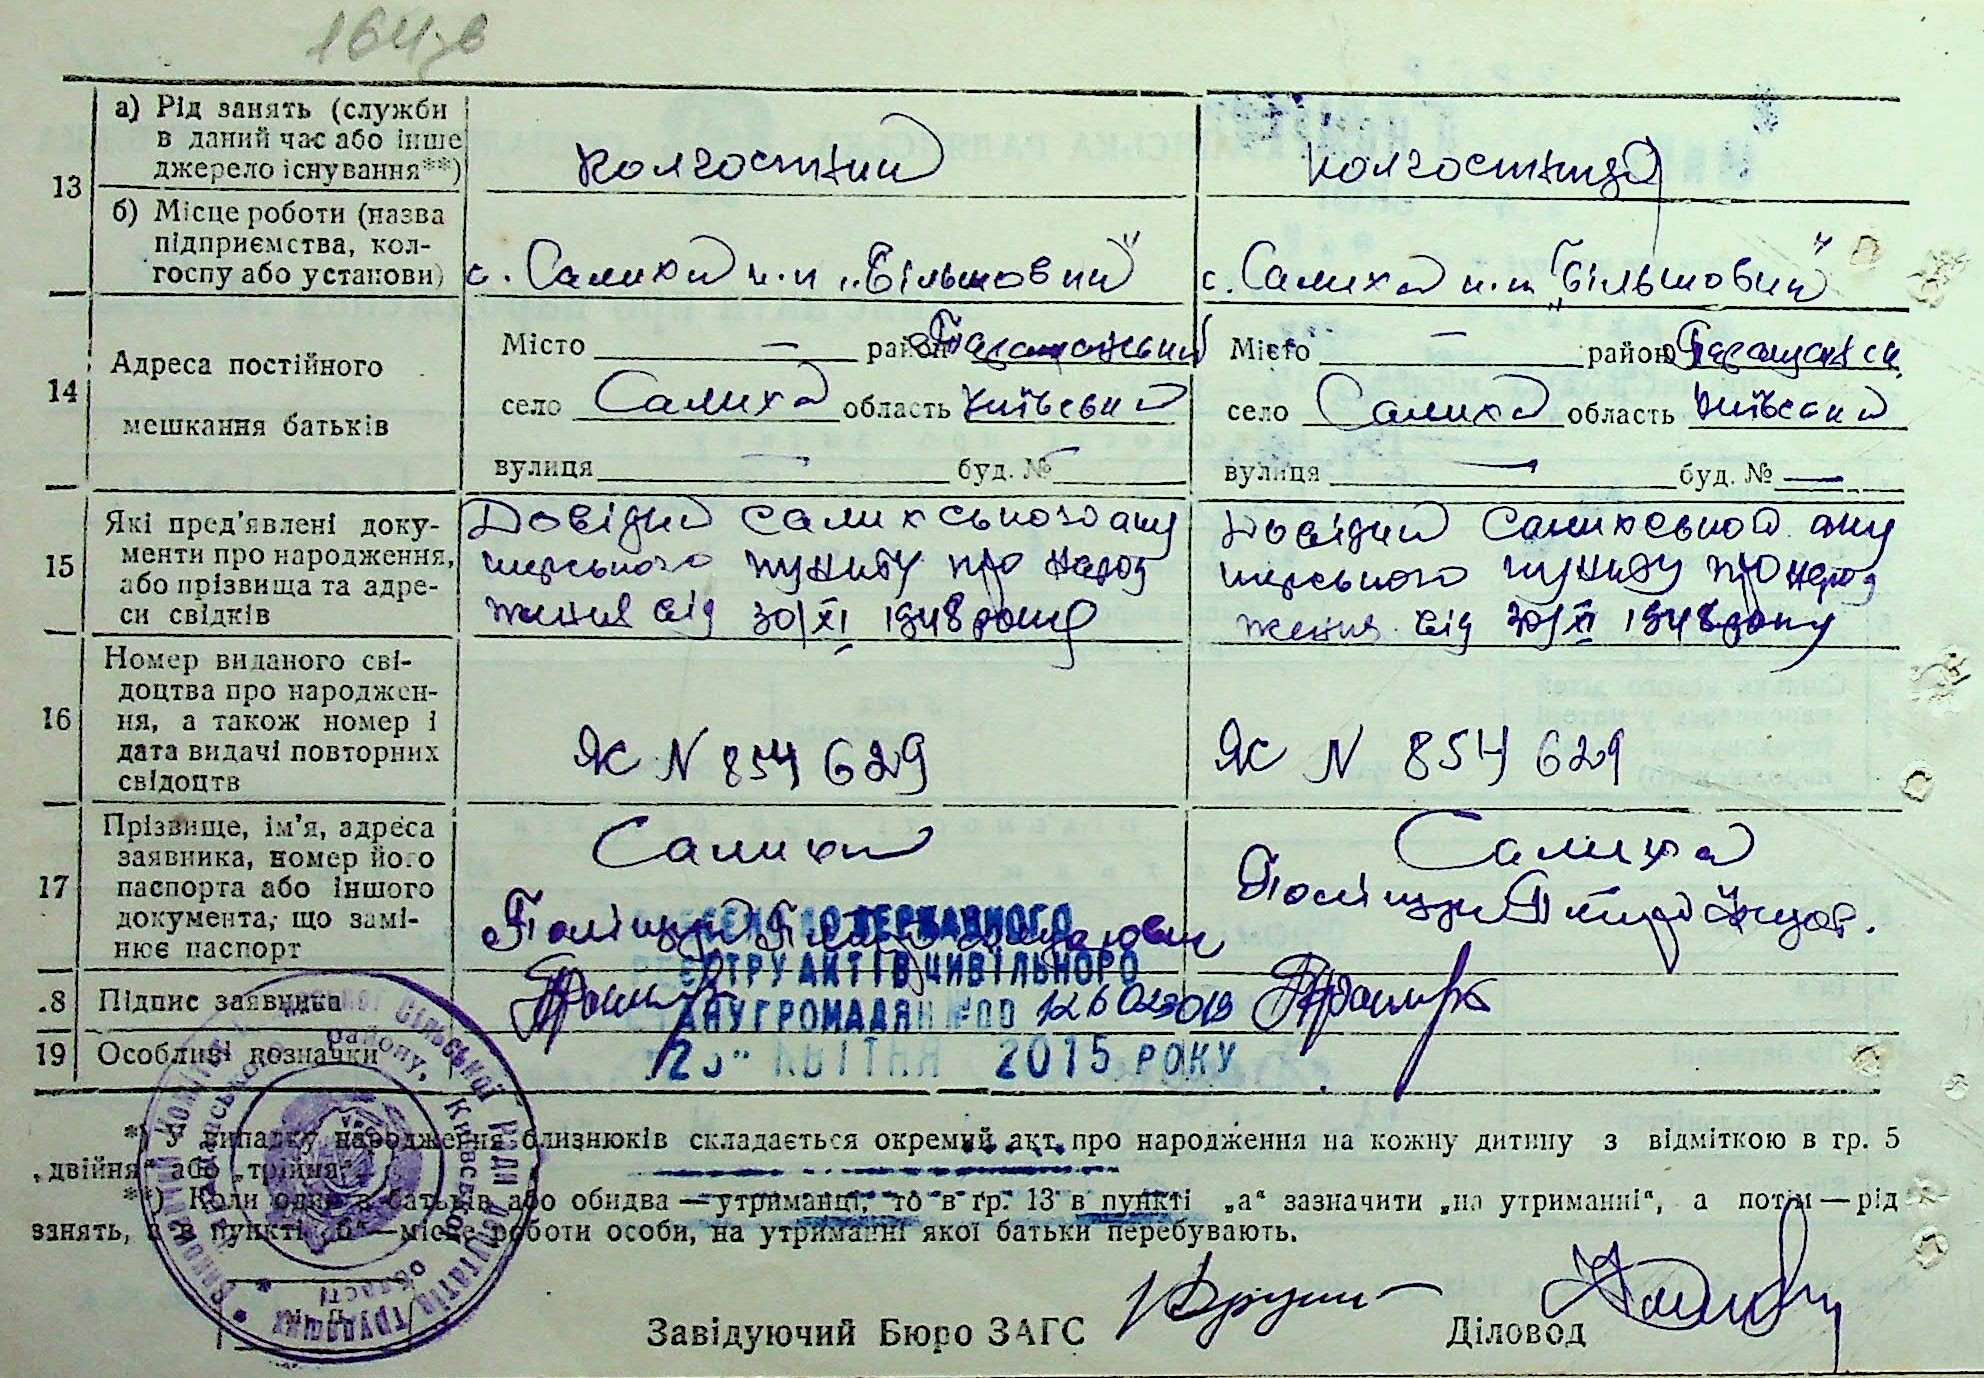 164зв
13
а) Рід занять (служби
в даний час або інше
джерело існування**)
колгоспник
колгоспниця
б) Місце роботи (назва
підприємства, кол-
госпу або установи)
с. Салиха к.г. „Більшовик"
с. Салиха к.г. „Більшовик"
14
Адреса постійного
мешкання батьків
Місто — район
Місто — район
село Салиха область Київська
село Салиха область Київська
вулиця — буд. № —
вулиця — буд. № —
15
Які пред'явлені доку-
менти про народження,
або прізвища та адре-
си свідків
Довідка Салихського аку
шерського пункту про народ
ження від 30/XI 1948 року
Довідка Салихського аку
шерського пункту про народ
ження від 30/XI 1948 року
16
Номер виданого сві-
доцтва про народжен-
ня, а також номер і
дата видачі повторних
свідоцтв
ЯК N 854629
ЯК N 854629
17
Прізвище, ім'я, адреса
заявника, номер його
паспорта або іншого
документа, що замі-
нює паспорт
Салиха
Поліщук
Салиха
Поліщук Петро
ДЕРЖАВНОГО
РЕЄСТРУ АКТІВ ЦИВІЛЬНОГО
СТАНУ ГРОМАДЯН
КВІТНЯ 2015 РОКУ
18 Підпис заявника
19 Особливі позначки
*) У випадку народження близнюків складається окремий акт про народження на кожну дитину з відміткою в гр. 5
„двійня" або „трійня".
**) Коли один з батьків або обидва — утриманці, то в гр. 13 в пункті „а" зазначити „на утриманні", а потім — рід
занять, а в пункті „б" — місце роботи особи, на утриманні якої батьки перебувають.
Сільської Ради депутатів трудящих
району, Київської області
М. П.
Завідуючий Бюро ЗАГС
Діловод